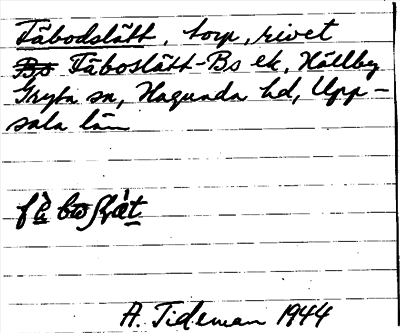 Fäbodslätt, torp, rivet
Fäboslätt-Bs ek, Hällby
Gryta sn, Hagunda hd, Upp-
sala län
A. Tideman 1944